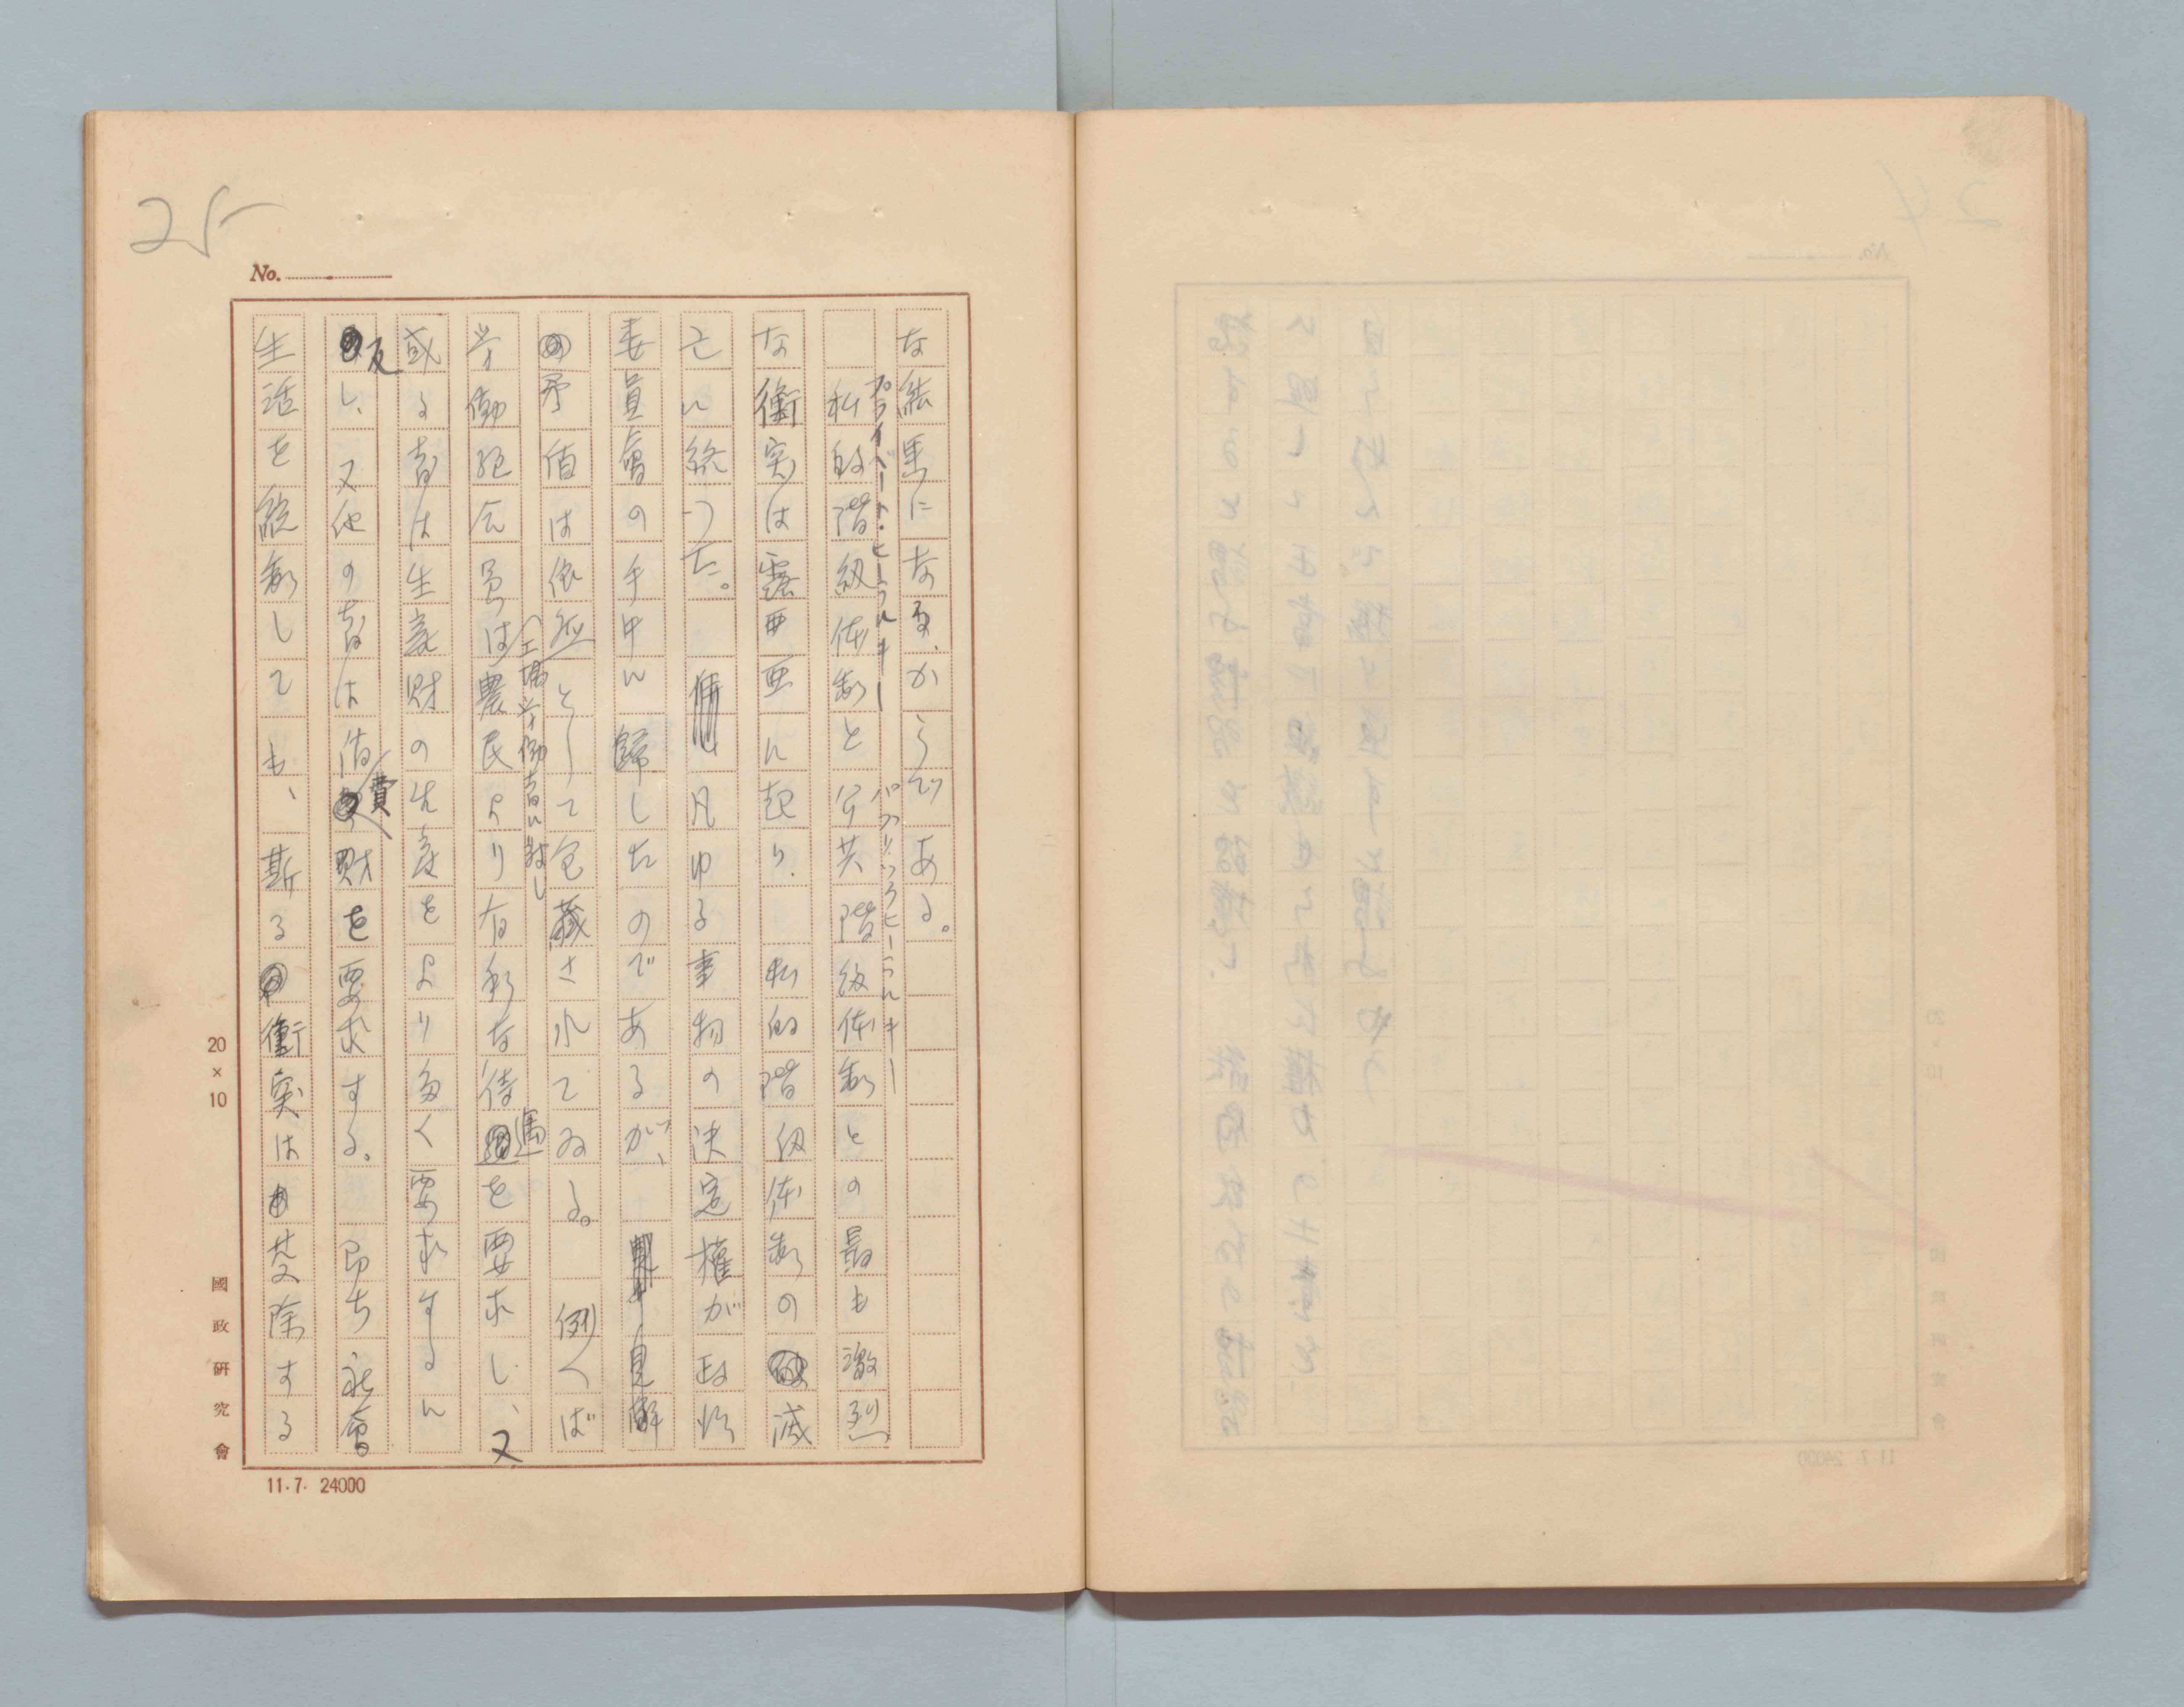 25
No.
な結果になるからである。
私的階級体制と公共階級体制との最も激烈
プライベート・ヒーラルキー
パブリックヒーラルキー
な衝突は露西亜に起り、私的階級体制の滅
亡に終つた。凡ゆる事物の決定権が政治
委員會の手中に歸したのであるが、見解
の矛盾は依然として包藏されてゐる。例へば
労働組合員は農民より有利な待遇を要求し、又
(工場労働者に対し
或る者は生産財の生産をより多く要求するに
反し、又他の者は消費財を要求する。即ち社會
生活を統制しても、斯る衝突は芟除する
20×10
國政研究會
11.7. 24000